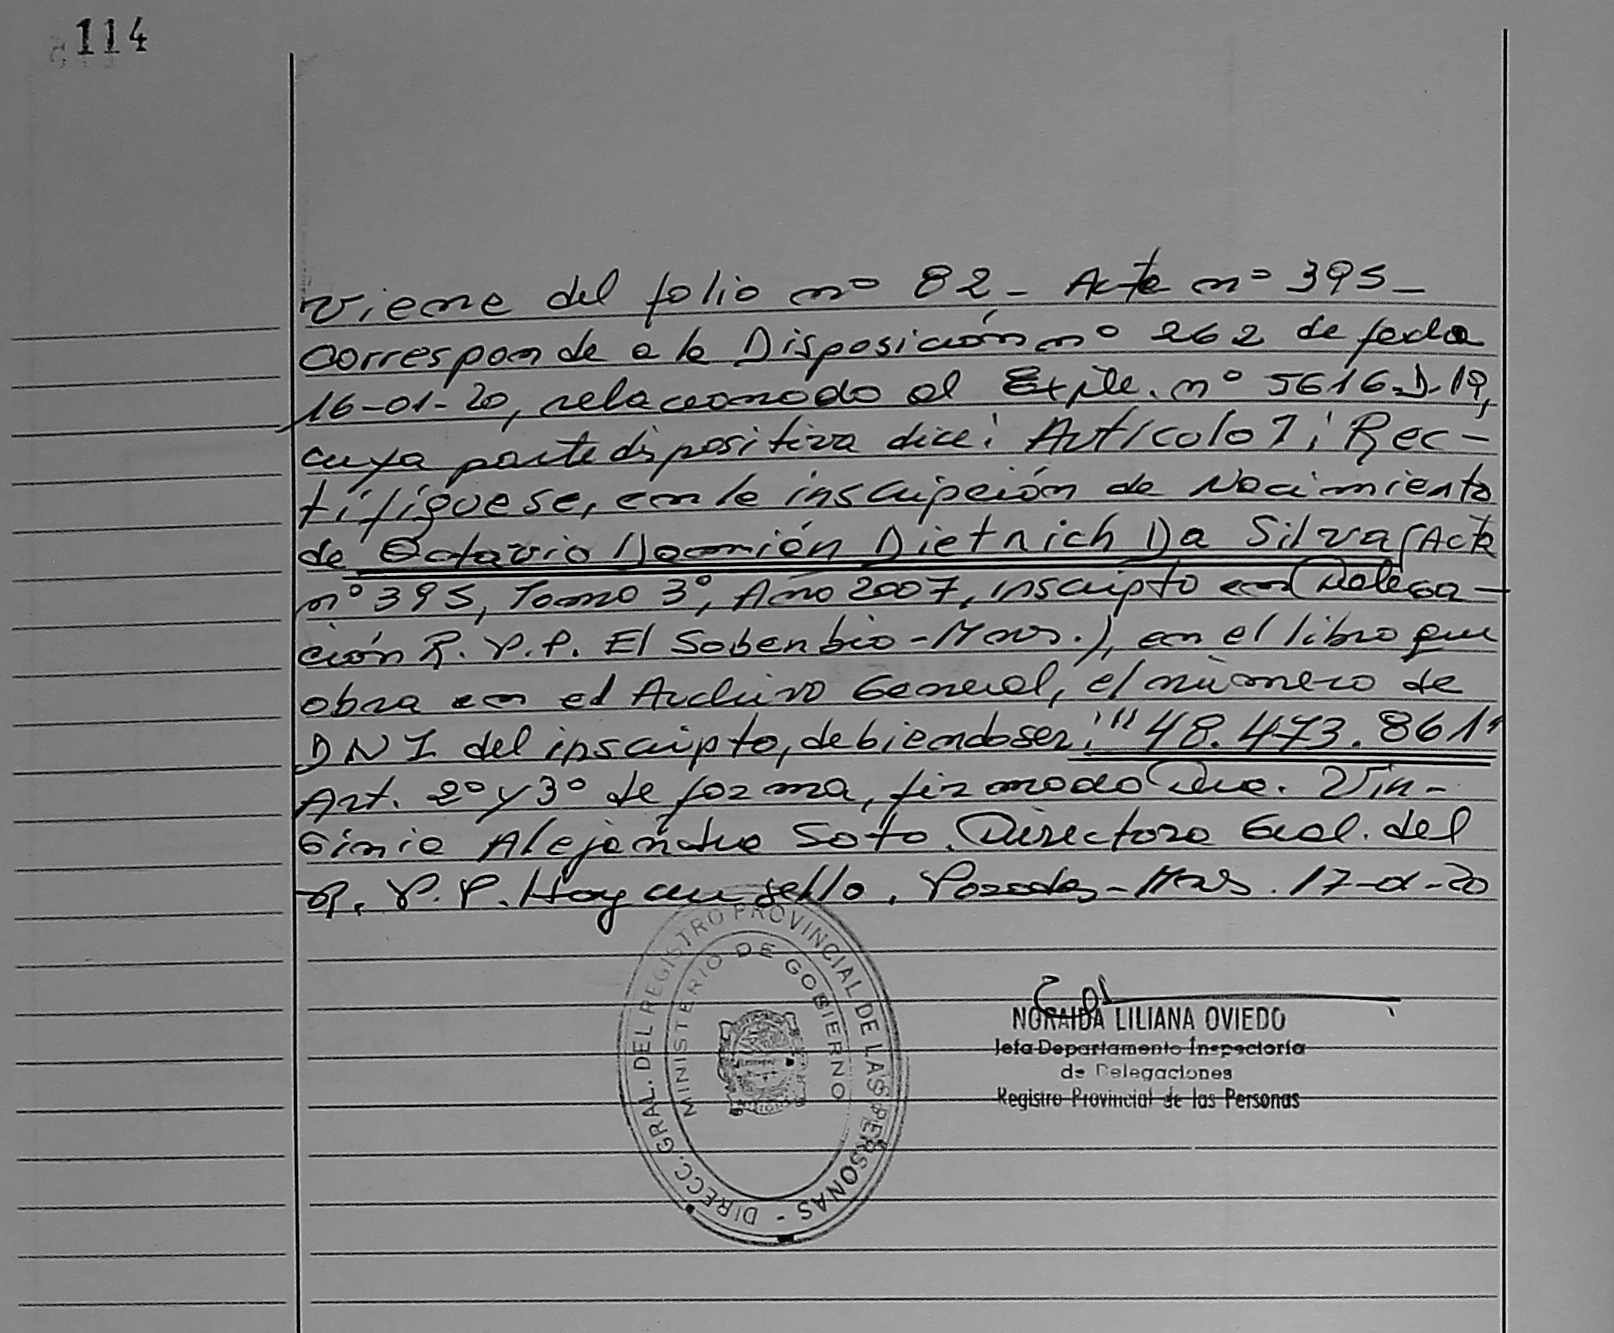 114
Viene del folio nº 82 - Acta nº 395 -
Corresponde a la Disposición nº 262 de fecha
16-01-20, relacionado al Expte. nº 5616-D-19,
cuya parte dispositiva dice: Artículo 1: Rec-
tifíquese, en la inscripción de Nacimiento
de Octavio Damián Dietrich Da Silva (Acta
nº 395, Tomo 3º, Año 2007, inscripto en Delega-
ción R.P.P. El Soberbio - Mnes.), en el libro que
obra en el Archivo General, el número de
DNI del inscripto, debiendo ser: "48.473.861"
Art. 2º y 3º de forma, firmado Dra. Vir-
ginia Alejandra Soto. Directora Gral. del
R.P.P. Hay un sello. Posadas - Mnes. 17-01-20
DIRECC. GRAL. DEL REGISTRO PROVINCIAL DE LAS PERSONAS -
MINISTERIO DE GOBIERNO
NORAIDA LILIANA OVIEDO
Jefa Departamento Inspectoría
de Delegaciones
Registro Provincial de las Personas